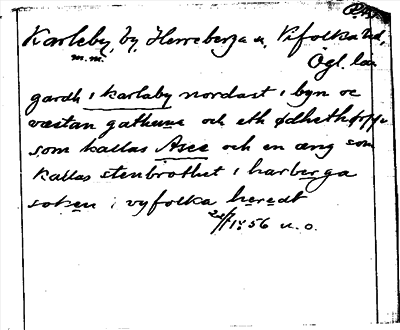 Karleby, by, Herreberga sn, Vifolka hd,
m.m. Ögl. län
gardh i karlaby nordast i byn oc
væstan gathuna och eth ødhethorpp
som kallas Asee och en æng som
kallas stenbrothet i harberga
soken i vyfolka heredt
1456 u.o.